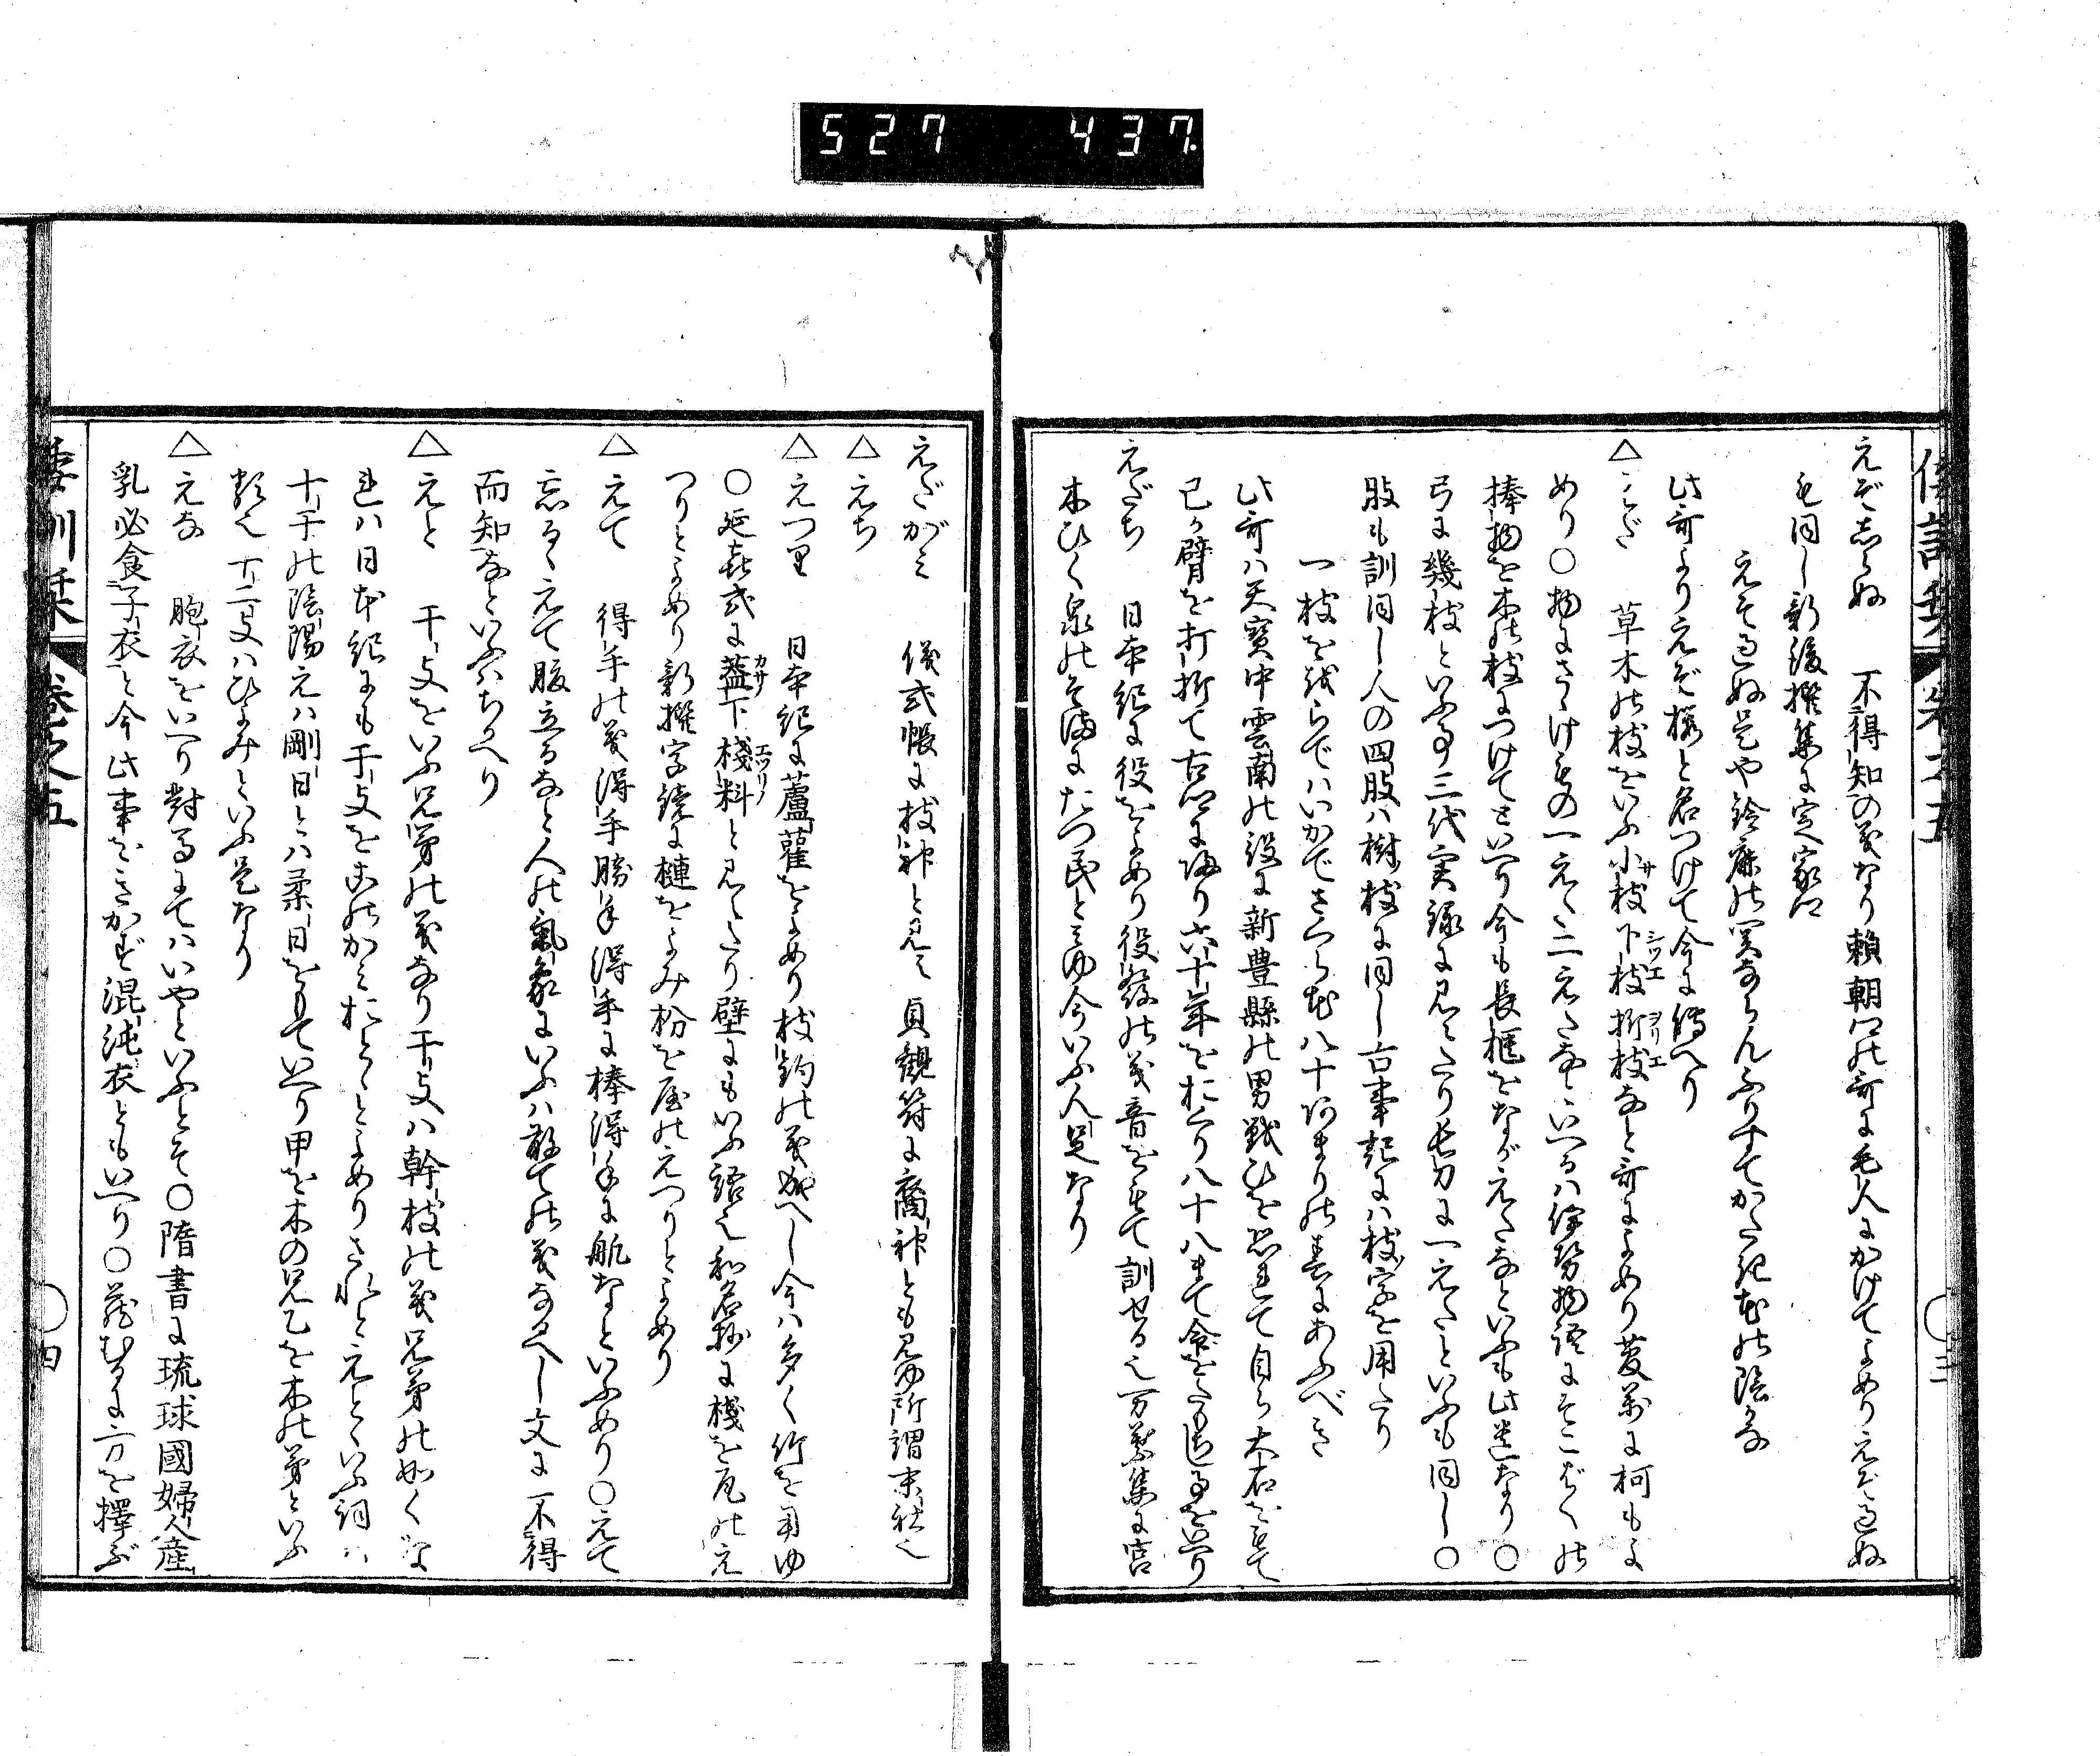 527 437.
えぞしらぬ 不得知の義なり頼朝卿の哥に毛人にかけてよめりえぞ過ぬ
も同し新後撰集に定家卿
えそ過ぬ是や鈴鹿の関ならんふりすてかたき花の陰かな
此哥よりえぞ櫻と名つけて今に傳へり
△えだ 草木の枝をいふ小枝下枝折枝なと哥によめり萬葉に柯もよ
めり〇物にさゝけもの一えた二えたなといへるハ伊勢物語にそこばくの
捧物を木の枝につけてといへり今も長櫃をながえたなといふも此遺なり〇
弓に幾枝といふ事三代実録に見えたり長刀に一えたといふも同し〇
肢も訓同し人の四肢ハ樹枝に同し古事記にハ枝字を用たり
一枝を折らでハいかでさくら花八十あまりの春にあふべき
此哥ハ天寶中雲南の役に新豊縣の男戦ひを恐れて自ら大石をもて
己か臂を打折て古郷に帰り六十年をおくり八十八まて命をたもちし事をいへり
えだち 日本紀に役をよめり役發の義音をもて訓せる也万葉集に宮
木ひく泉のそまにたつ民とみゆ今いふ人足なり
えだがみ 儀式帳に枝神と見え貞観符に裔神とも見ゆ所謂末社也
△えち
△えつり 日本紀に蘆雚をよめり枝釣の義成へし今ハ多く竹を用ゆ
〇延喜式に葢下棧料と見えたり壁にもいふ語也和名抄に棧を瓦のえ
つりとよめり新撰字鏡に槤をよみ枌を屋のえつりとよめり
△えて 得手の義得手勝手得手に棒得手に帆なといふめり〇えて
忘るゝえて腹立るなと人の氣象にいふハ敢ての義なるへし文に不得
而知なといふハちかへり
△えと 干支をいふ兄弟の義なり干支ハ幹枝の義兄弟の如くな
れハ日本紀にも干支をこのかみおとゝとよめりされとえとゝいふ詞ハ
十干の陰陽元ハ剛日とハ柔日をもていへり甲を木の兄乙を木の弟といふ
類也十二支ハひよみといふ是なり
△えな 胞衣をいへり對馬にてハいやといふとそ〇隋書に琉球國婦人産
乳必食子衣と今此事をきかず混沌衣ともいへり〇蔵むるに方を擇ぶ
倭訓栞 巻之五 〇三
倭訓栞 巻之五 〇四